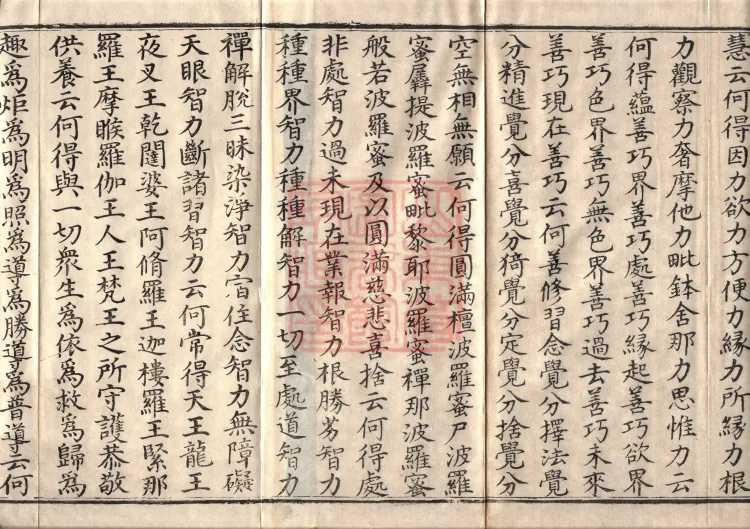 慧云何得因力欲力方便力緣力所緣力根
力觀察力奢摩他力毗鉢舍那力思惟力云
何得蘊善巧界善巧處善巧緣起善巧欲界
善巧色界善巧無色界善巧過去善巧未來
善巧現在善巧云何善修習念覺分擇法覺
分精進覺分喜覺分猗覺分定覺分捨覺分
空無相無願云何得圓滿檀波羅蜜尸波羅
蜜羼提波羅蜜毗黎耶波羅蜜禪那波羅蜜
般若波羅蜜及以圓滿慈悲喜捨云何得處
非處智力過未現在業報智力根勝劣智力
種種界智力種種解智力一切至處道智力
禪解脫三昧染淨智力宿住念智力無障礙
天眼智力斷諸習智力云何常得天王龍王
夜叉王乾闥婆王阿脩羅王迦樓羅王緊那
羅王摩睺羅伽王人王梵王之所守護恭敬
供養云何得與一切衆生為依為救為歸為
趣為炬為明為照為導為勝導為普導云何